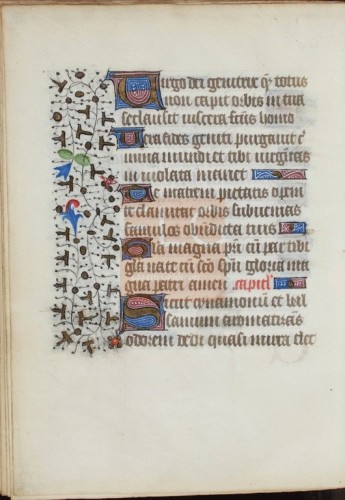 Virgo dei genitrix q̄ totus
non capit orbis in tua
se clausit viscera factus homo
Vera fides geniti purgavit c̄
mina mundi et tibi virginitas
inviolata manet
Te matrem pietatis opem
te clamitat orbis subvenias
famulis o benedicta tuis
Gloria magna pri cū par tibi
gla nate cū sc̄o spū gloria ma
gna patri amen capitl̄
Sicut cynamomū et bal
samum aromatizās
odorem dedi quasi mirra elec